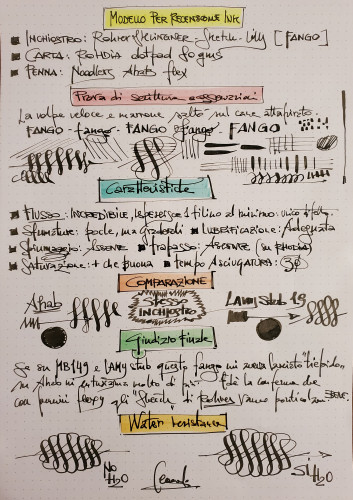 Modello Per Recensione Ink
Inchiostro: Rohrer & Klingner - Sketch - Lilly [FANGO]
Carta: Rohdia dotpad 80 gms
Penna: Noodlers Ahab flex
Prova di scrittura e
La volpe veloce e marrone salto sul cane
FANGO - fango - FANGO fango - FANGO
Caratteristiche
Flusso: Incredibile,
Sfumature: poche, ma Lubrificazione: Adeguata
Spiumaggio: Assente Trapasso: Assente (su Rhodia)
Saturazione: + che buona tempo Asciugatura:
Comparazione
Ahab Stesso Inchiostro Lamy Stub 1.9
Giudizio finale
Se su MB149 e LAMY stub questo fango mi aveva lasciato "tiepido",
su Ahab mi entusiasma molto di più. la conferma che
con pennini flessy gli "Sketch" di Rohrer vanno BENE.
Water resistance
No H2O
Sì H2O